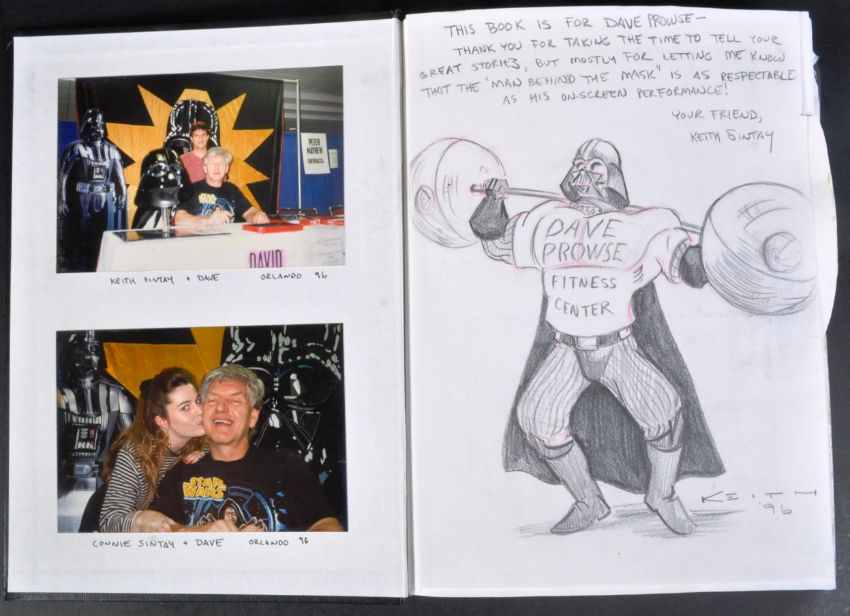 PETER
MAYHEW
CHEWBACCA
STAR
WARS
DAVID
KEITH SINTAY + DAVE ORLANDO 96
STAR
WARS
CONNIE SINTAY + DAVE ORLANDO 96
THIS BOOK IS FOR DAVE PROWSE—
THANK YOU FOR TAKING THE TIME TO TELL YOUR
GREAT STORIES, BUT MOSTLY FOR LETTING ME KNOW
THAT THE "MAN BEHIND THE MASK" IS AS RESPECTABLE
AS HIS ON-SCREEN PERFORMANCE!
YOUR FRIEND,
KEITH SINTAY
DAVE
PROWSE
FITNESS
CENTER
KEITH
'96